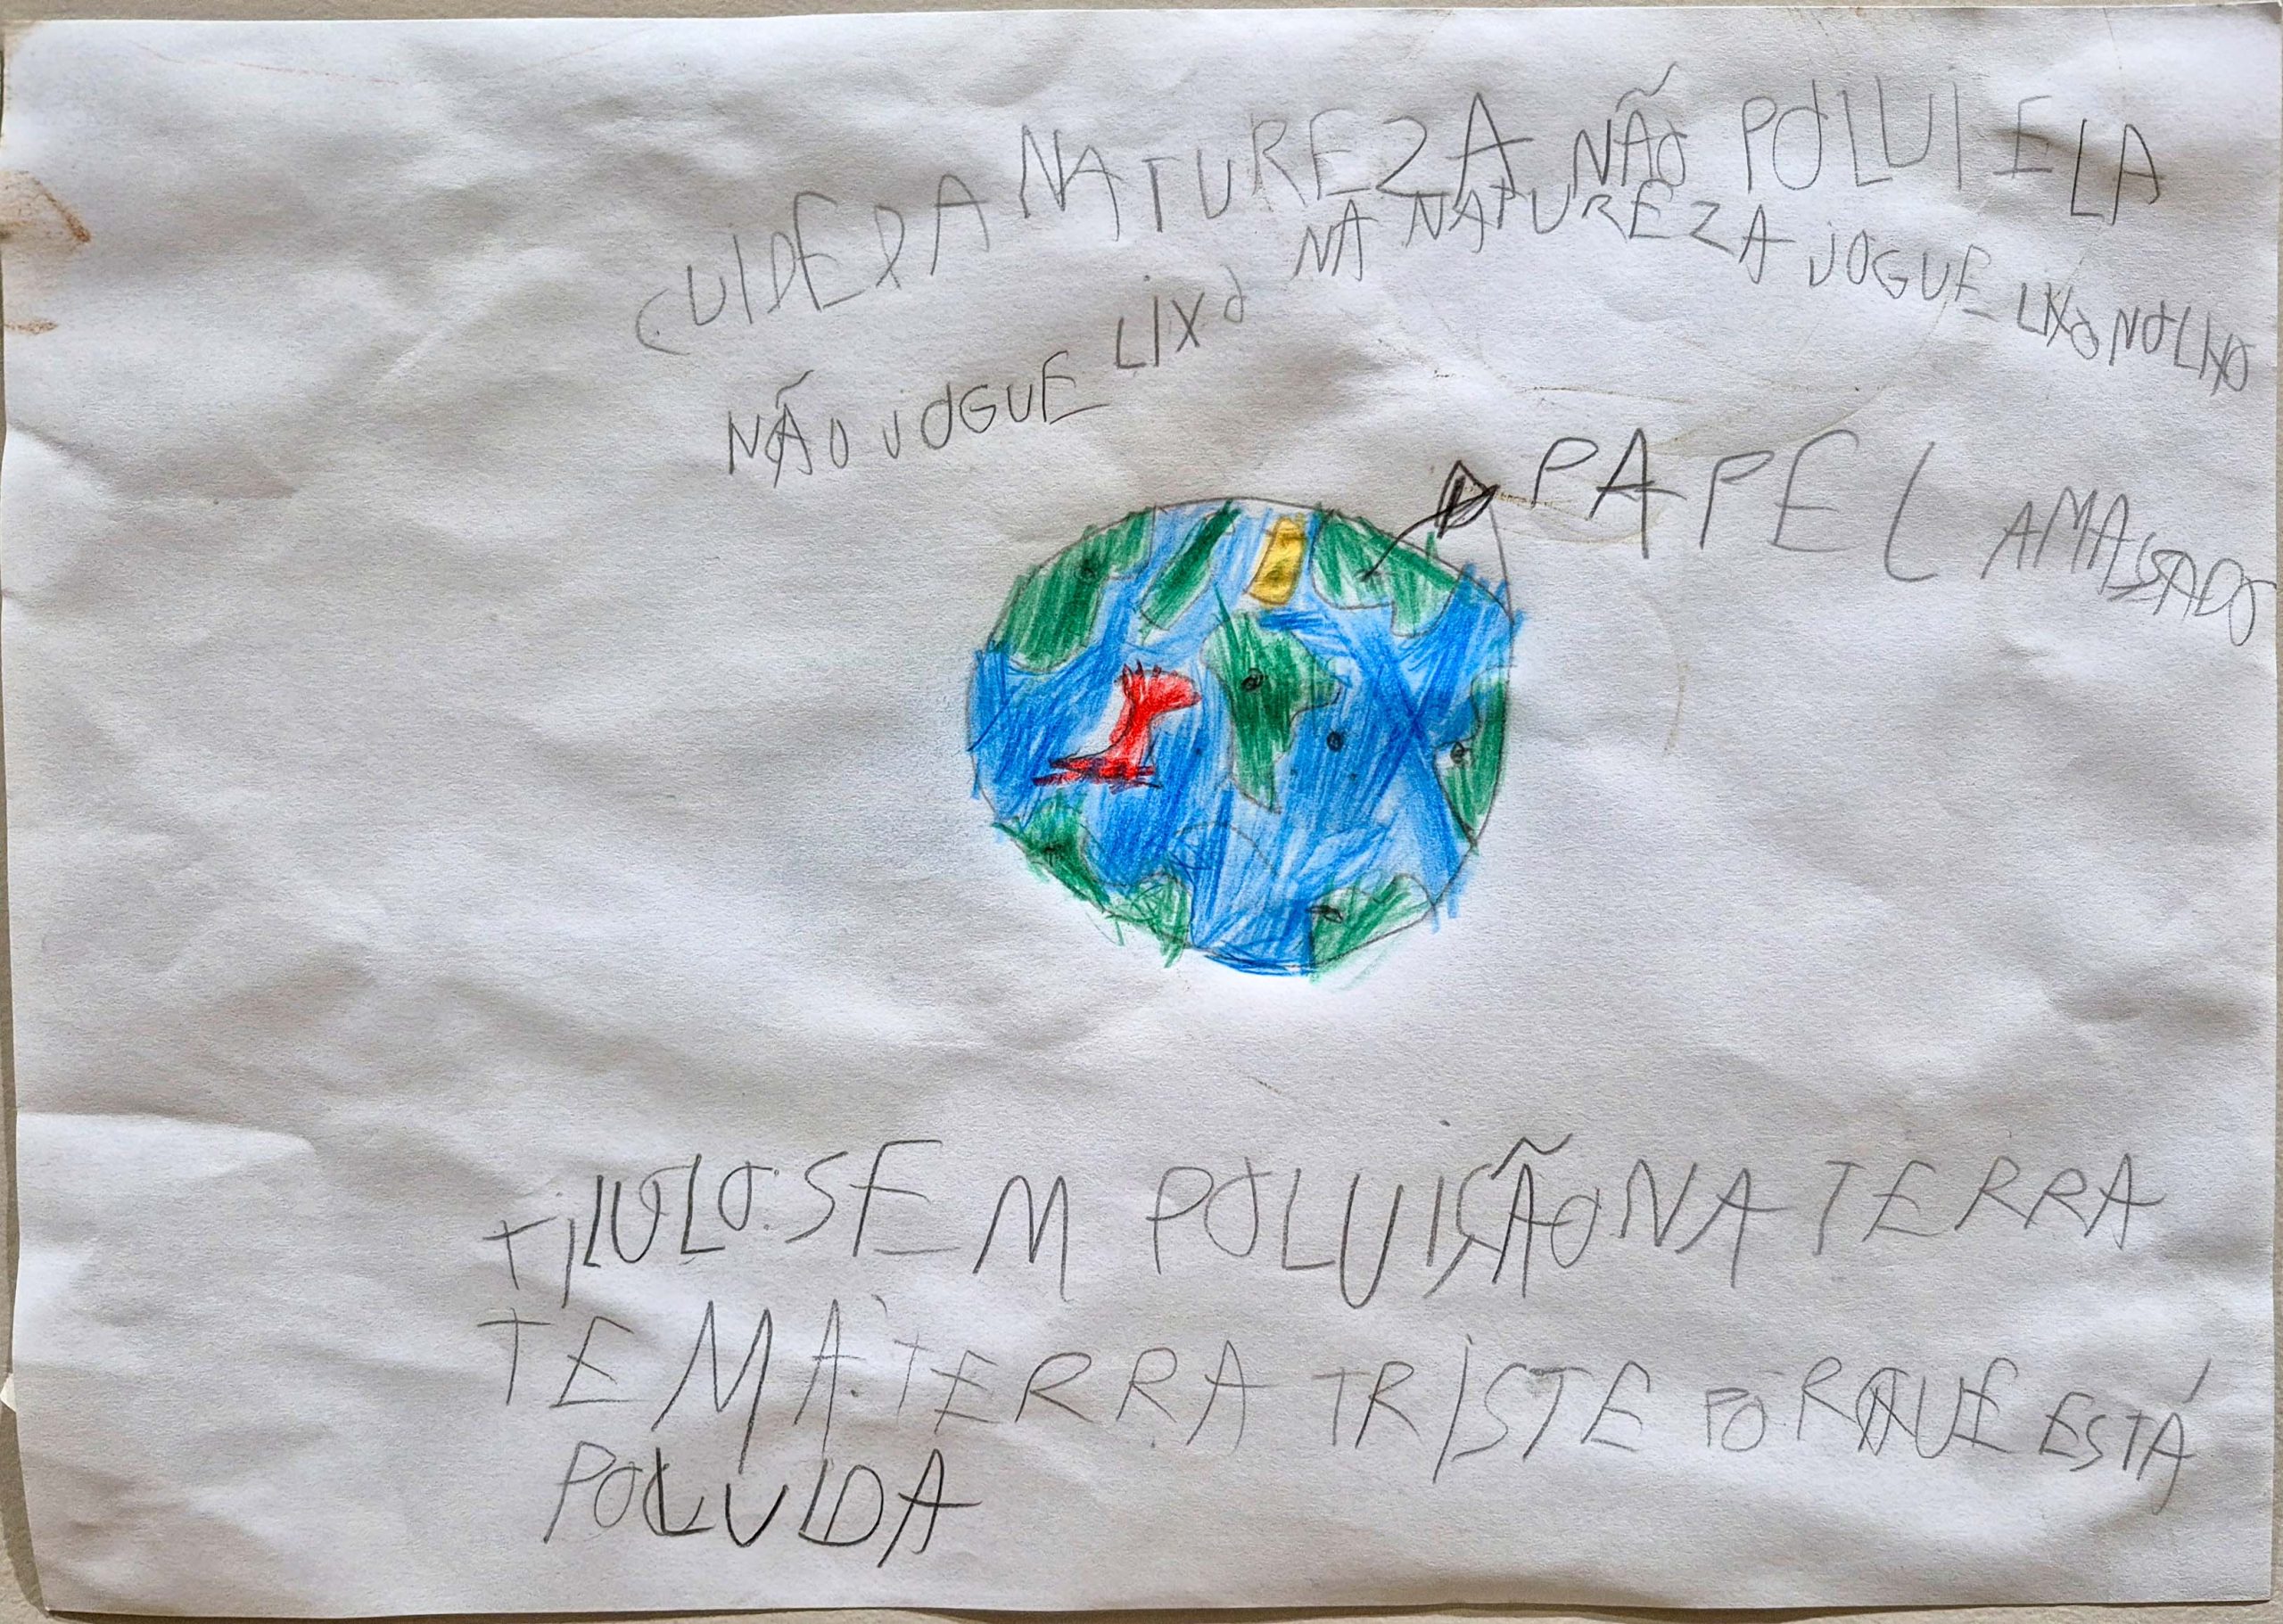 CUIDE DA NATUREZA NÃO POLUI ELA
NÃO JOGUE LIXO NA NATUREZA JOGUE LIXO NO LIXO
PAPEL AMASSADO
TITULO: SEM POLUIÇÃO NA TERRA
TEMA: TERRA TRISTE PORQUE ESTÁ
POLUIDA